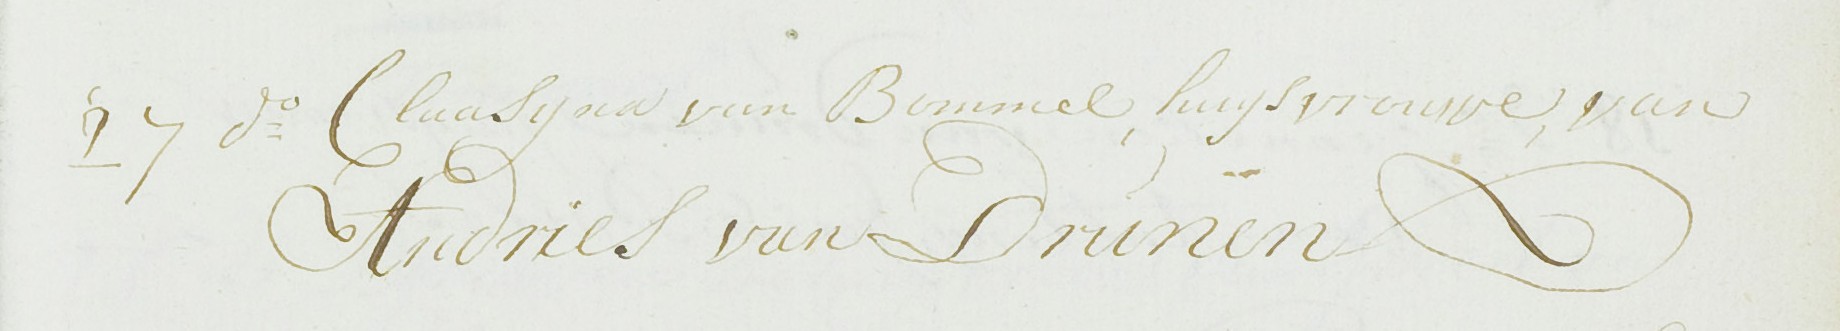 17 do Claasyna van Bommel, huysvrouwe, van
Andries van Drunen